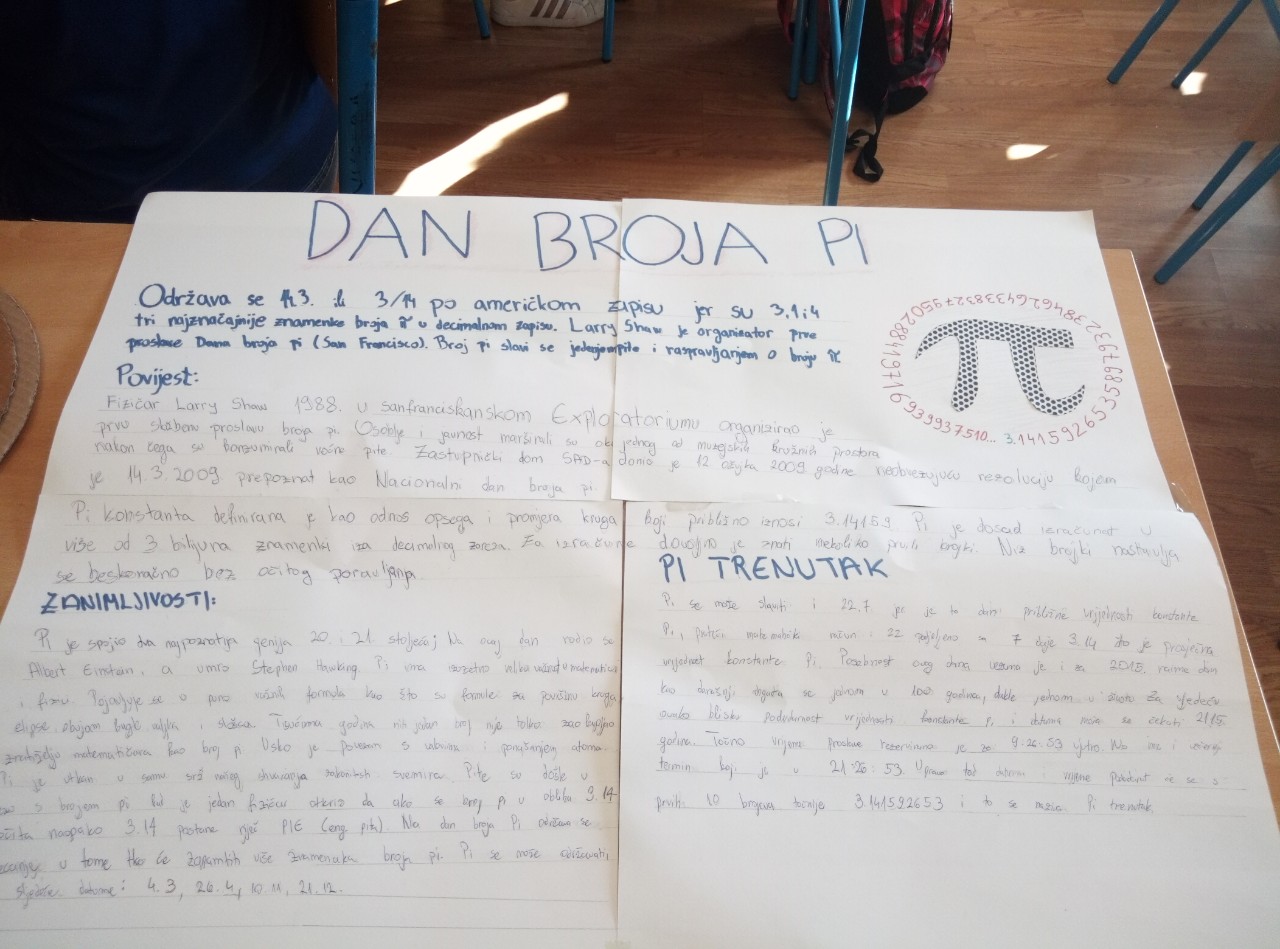 DAN BROJA PI
Održava se 14.3. ili 3/14 po američkom zapisu jer su 3,1 i 4
tri najznačajnije znamenke broja π u decimalnom zapisu. Larry Shaw je organizator prve
proslave Dana broja pi (San Francisco). Broj pi slavi se jedenjem pite i raspravljanjem o broju π.
3.14159265358979323846264338327950288419719399375 10...
Povijest:
Fizičar Larry Shaw 1988. u sanfranciskanskom Exploratoriumu organizirao je
prvu službenu proslavu broja pi. Osoblje i javnost marširali su oko jednog od muzejskih kružnih prostora
nakon čega su konzumirali voćne pite. Zastupnički dom SAD-a donio je 12. ožujka 2009. godine neobvezujuću rezoluciju kojom
je 14.3.2009 prepoznat kao Nacionalni dan broja pi.
Pi konstanta definirana je kao odnos opsega i promjera kruga koji približno iznosi 3.14159. Pi je dosad izračunat u
više od 3 bilijuna znamenki iza decimalnog zareza. Za izračune dovoljno je znati nekoliko prvih brojki. Niz brojki nastavlja
se beskonačno bez očitog ponavljanja.
ZANIMLJIVOSTI:
Pi je spojio dva najpoznatija genija 20. i 21. stoljeća; Na ovaj dan rodio se
Albert Einstein, a umro Stephen Hawking. Pi ima izuzetno veliku važnost u matematici
i fizici. Pojavljuje se u puno važnih formula kao što su formule za površinu kruga,
elipse, obujam kugle, valjka i stošca. Tisućama godina niti jedan broj nije toliko zaokupljao
znatiželju matematičara kao broj pi. Usko je povezan s valovima i ponašanjem atoma.
Pi je utkan u samu srž našeg shvaćanja svemira. Pite su došle u
s brojem pi kad je jedan fizičar otkrio da ako se broj pi u obliku 3.14
naopako 3.14 postane riječ PIE (eng. pita). Na dan broja Pi održava se
u tome tko će zapamtiti više znamenaka broja pi. Pi se može održavati
sljedeće datume: 4.3, 26.4, 10.11, 21.12.
PI TRENUTAK
Pi se može slaviti i 22.7. jer je to datum približne vrijednosti konstante
Pi, matematički račun: 22 podijeljeno sa 7 daje 3.14 što je prosječna
vrijednost konstante Pi. Posebnost ovog dana vezana je i za 2015. naime dan
kao današnji događa se jednom u 100 godina, dakle jednom u životu. Za sljedeću
ovako blisku podudarnost vrijednosti konstante pi i datuma može se čekati 2115.
godinu. Točno vrijeme proslave rezervirano je za 9:26:53 ujutro. No ima i večernji
termin koji je u 21:26:53. Upravo tad datum i vrijeme poklapat će se s
prvih 10 brojeva točnije 3.141592653 i to se naziva Pi trenutak.